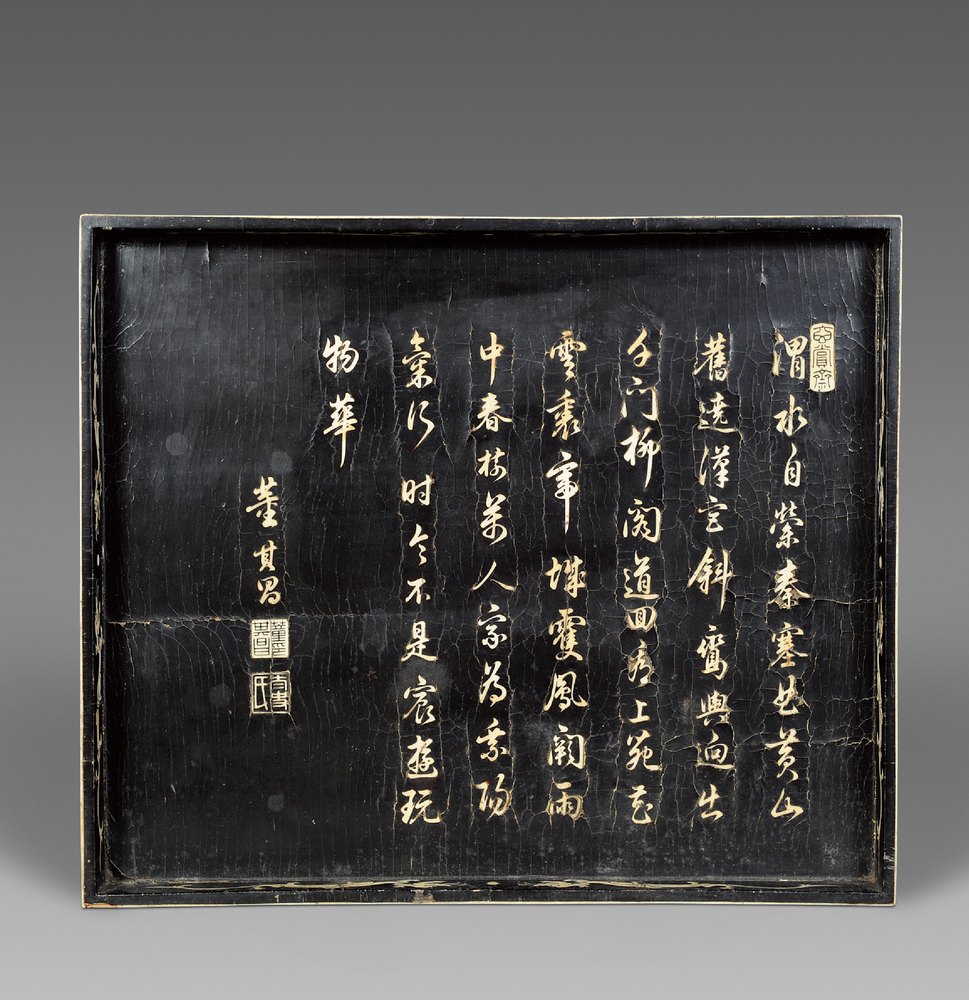 玄賞齋
渭水自縈秦塞曲黃山
舊遶漢宮斜鑾輿迥出
千門柳閣道回看上苑花
雲裏帝城雙鳳闕雨
中春樹萬人家為乘陽
氣行時令不是宸遊玩
物華
董其昌
董其昌印
太史氏